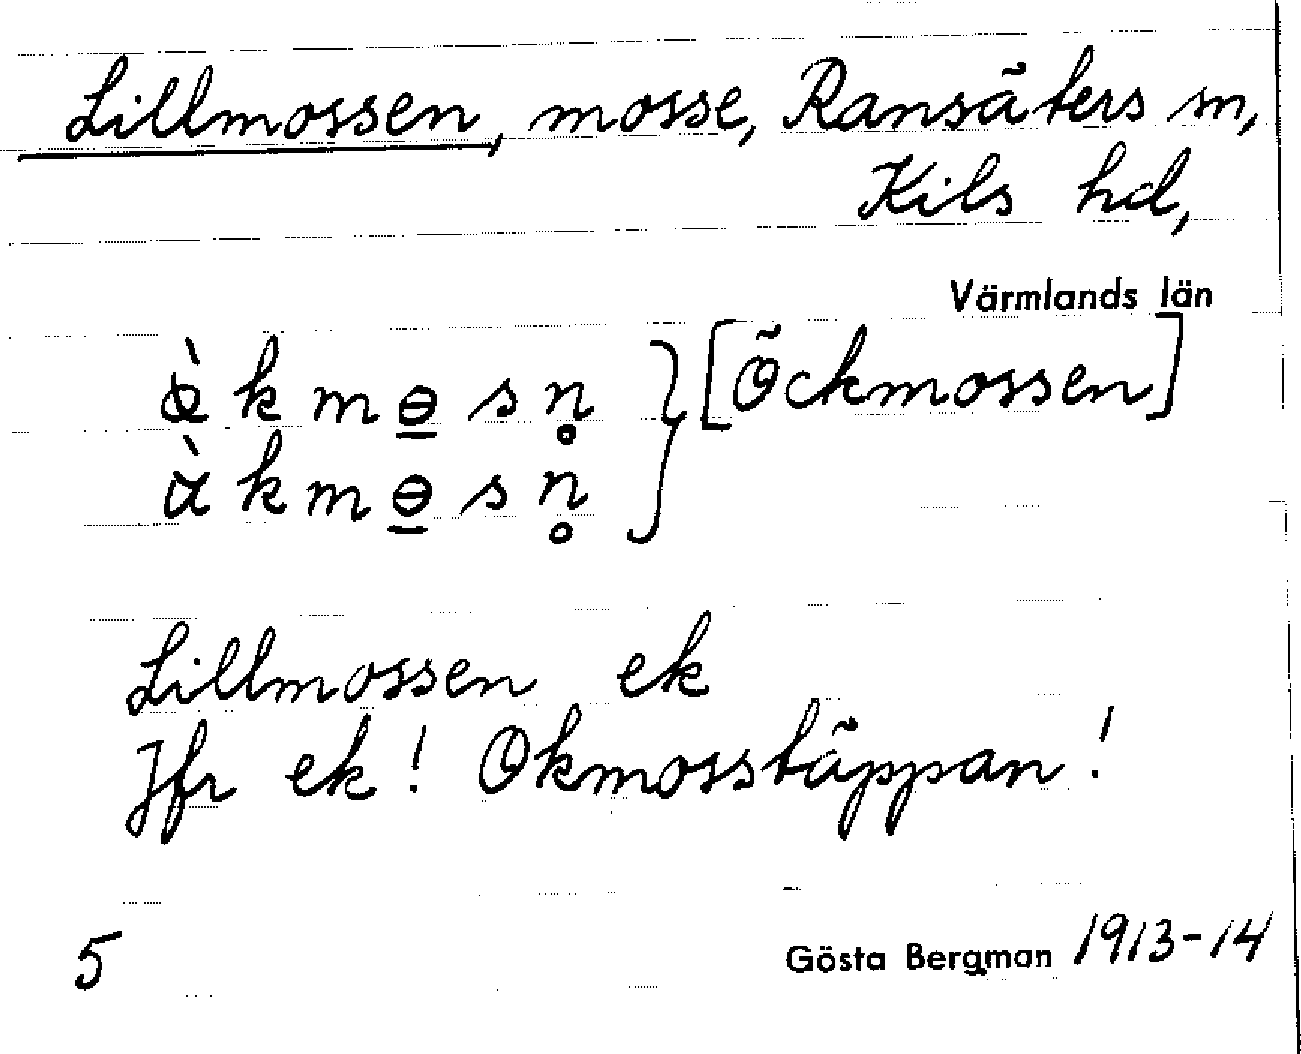 Lillmossen, mosse, Ransäters sn,
Kils hd,
Värmlands län
kmɵsn̥ } [Öckmossen]
kmɵsn̥
Lillmossen ek
Jfr ek! Okmosstäppan!
5 Gösta Bergman 1913-14